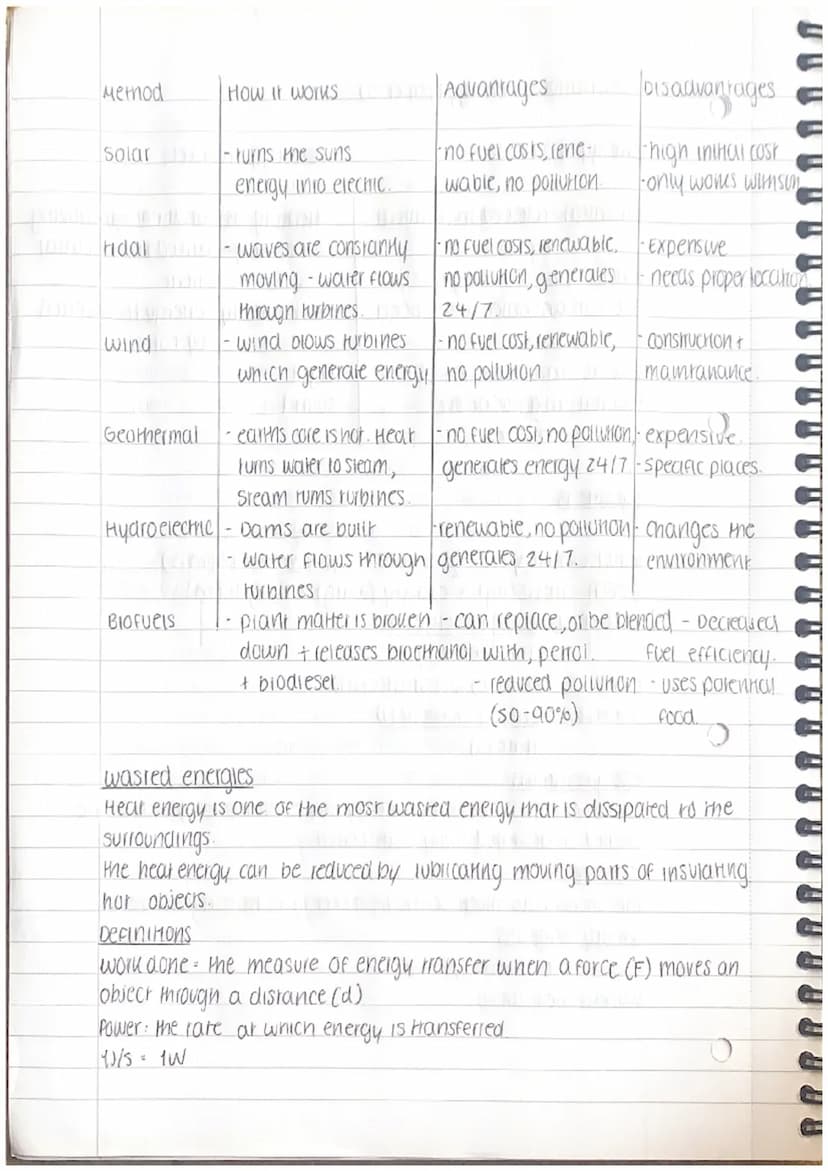 Method How it works Advantages Disadvantages
Solar - turns the suns - no fuel costs, rene- - high initial cost
energy into electric. wable, no pollution - only works with sun
tidal - waves are constantly - no fuel costs, renewable, - Expensive
moving - water flows no pollution, generates - needs proper location
through turbines. 24/7.
wind - wind blows turbines - no fuel cost, renewable, - construction +
which generate energy no pollution maintanance.
Geothermal - earths core is hot. Heat - no fuel cost, no pollution, - expensive.
turns water to steam, generates energy 24/7 - specific places.
steam turns turbines.
Hydroelectric - Dams are built - renewable, no pollution - changes the
- water flows through generates 24/7. environment
turbines
Biofuels - plant matter is broken - can replace, or be blended - Decreased
down + releases bioethanol with, petrol. fuel efficiency.
+ biodiesel. - reduced pollution - uses potential
(50-90%) food.
wasted energies
Heat energy is one of the most wasted energy that is dissipated to the
surroundings.
the heat energy can be reduced by lubricating moving parts of insulating
hot objects.
Definitions
work done = the measure of energy transfer when a force (F) moves an
object through a distance (d)
Power: the rate at which energy is transferred
1J/s = 1W